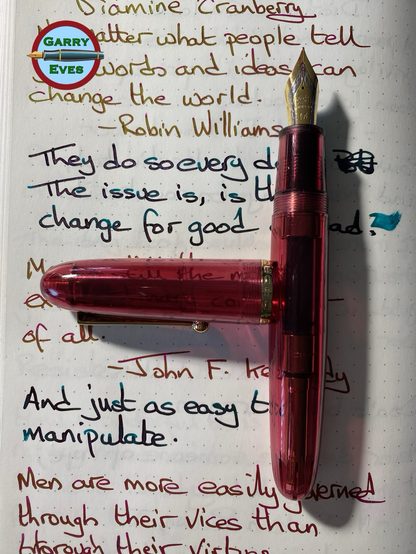 Diamine Cranberry
GARRY
EVES
matter what people tell
words and ideas can
change the world.
-Robin Williams
They do so every
The issue is, is
change for good
Men
of all.
-John F.
And just as easy
manipulate.
Men are more easily governed
through their vices than
through their virtues